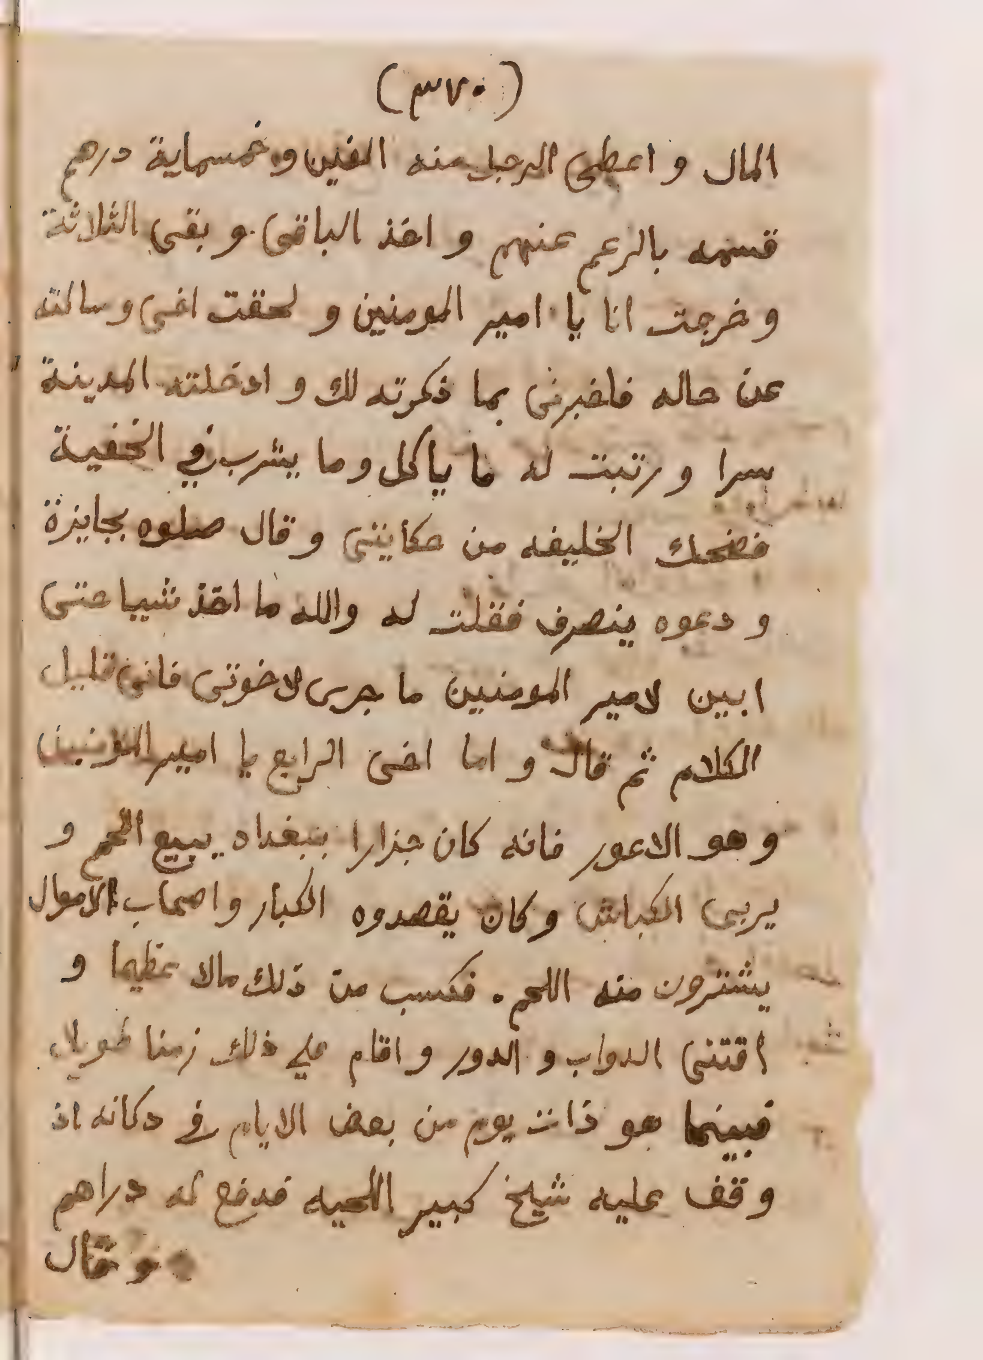 (٣٧٠)
المال و اعطى الرجل منه الفين و خمسماية درهم
قسمه بالرعم عنهم و اخذ الباقى و بقى الثلاثة
و خرجت انا يا امير المومنين و لحقت اخى و سالته
عن حاله فاخبرنى بما ذكرته لك و ادخلته المدينة
سرا و رتبت له ما ياكل و ما يشرب في الخفية
فضحك الخليفه من حكايتى و قال صلوه بجايزة
و دعوه ينصرف فقلت له والله ما اخذ شييا حتى
ابين لامير المومنين ما جرى لاخوتى فانى قليل
الكلام ثم قال و اما اخى الرابع يا امير المومنين
و هو الاعور فانه كان جزارا ببغداد يبيع اللحم و
يربى الكباش و كان يقصدوه الكبار و اصحاب الاموال
يشترون منه اللحم . فكسب من ذلك مالا عظيما و
اقتنى الدواب و الدور و اقام على ذلك زمنا طويلا
فبينما هو ذات يوم من بعض الايام في دكانه اذ
وقف عليه شيخ كبير اللحيه فدفع له دراهم
و قال